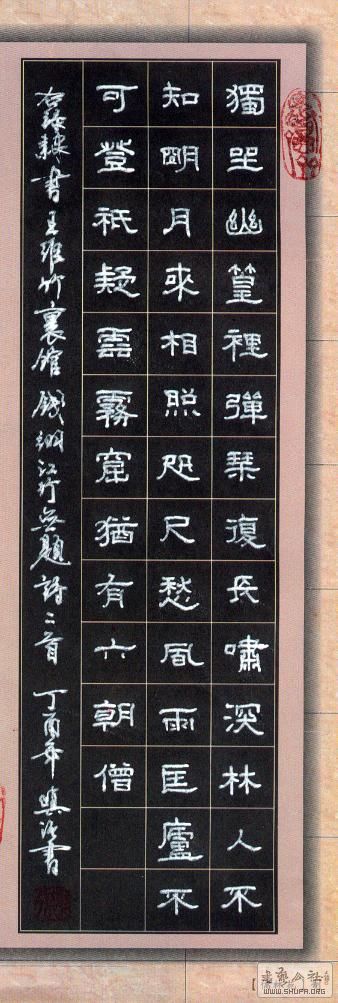 獨坐幽篁裡彈琹復長嘯深林人不
知朙月來相照咫尺愁風雨匡廬不
可登祇疑雲霧窟猶有六朝僧
書王維竹裏館 錢珝江行無題詩二首 丁酉年
WWW.SHUFA.ORG